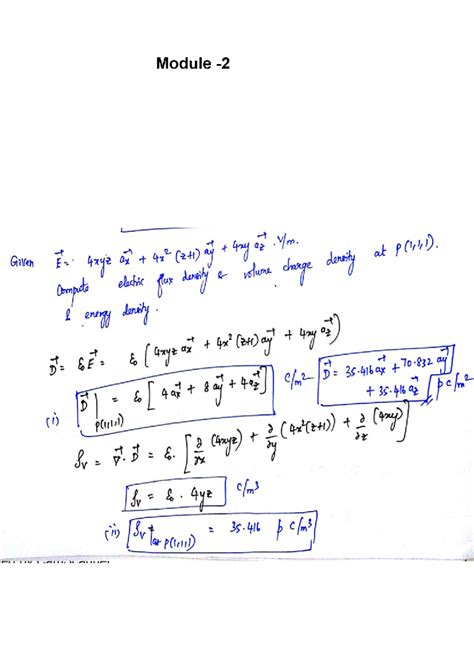 Module -2
Given E⃗ = 4xyz a⃗x + 4x² (z+1) a⃗y + 4xy a⃗z . V/m.
Compute electric flux density & volume charge density at P(1,1,1).
& energy density.
D⃗ = ε₀E⃗ = ε₀ (4xyz a⃗x + 4x² (z+1) a⃗y + 4xy a⃗z)
(i) D⃗ |P(1,1,1) = ε₀ [4 a⃗x + 8 a⃗y + 4 a⃗z] C/m² D⃗ = 35.416 a⃗x + 70.832 a⃗y
+ 35.416 a⃗z p C/m²
ρv = ∇⃗ . D⃗ = ε₀ [∂/∂x (4xyz) + ∂/∂y (4x²(z+1)) + ∂/∂z (4xy)]
ρv = ε₀ . 4yz C/m³
(ii) ρv |at P(1,1,1) = 35.416 p C/m³